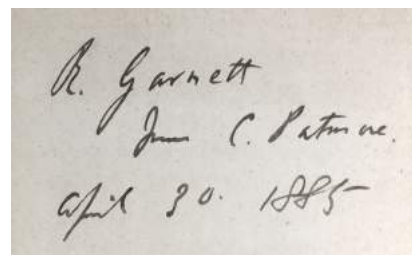 R. Garnett
from C. Patmore.
April 30. 1885